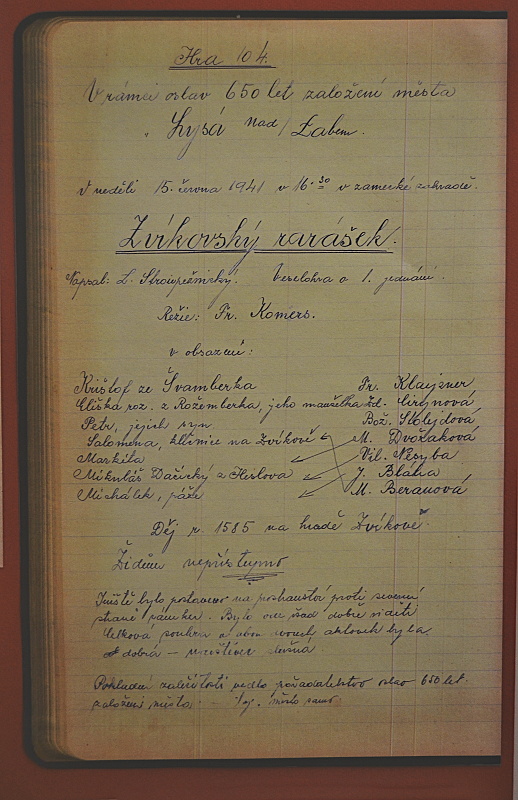 Hra 104.
V rámci oslav 650 let založení města
Lysá nad/Labem.
v neděli 15. června 1941 v 16.30 v zámecké zahradě.
Zvíkovský rarášek.
Napsal: L. Stroupežnický. Veselohra o 1. jednání.
Režie: Fr. Komers.
v obsazení:
Krištof ze Švamberka Fr. Klajzner
Eliška roz. z Rožemberka, jeho manželka Zd. Cirynová
Petr, jejich syn Bož. Stolejdová
Salomena, klíčnice na Zvíkově M. Dvořáková
Markéta Vil. Nesyba
Mikuláš Dačický z Heslova J. Bláha
Michálek, páže M. Beranová
Děj r. 1585 na hradě Zvíkově.
Židům nepřístupno
bylo postaveno na proti
strané zámku. Bylo dobře viděti
Celková souhra a obou aktovek byla
dobrá — slušná.
Pokladní záležitosti vedlo pořadatelstvo oslav 650 let
založení města — město samo